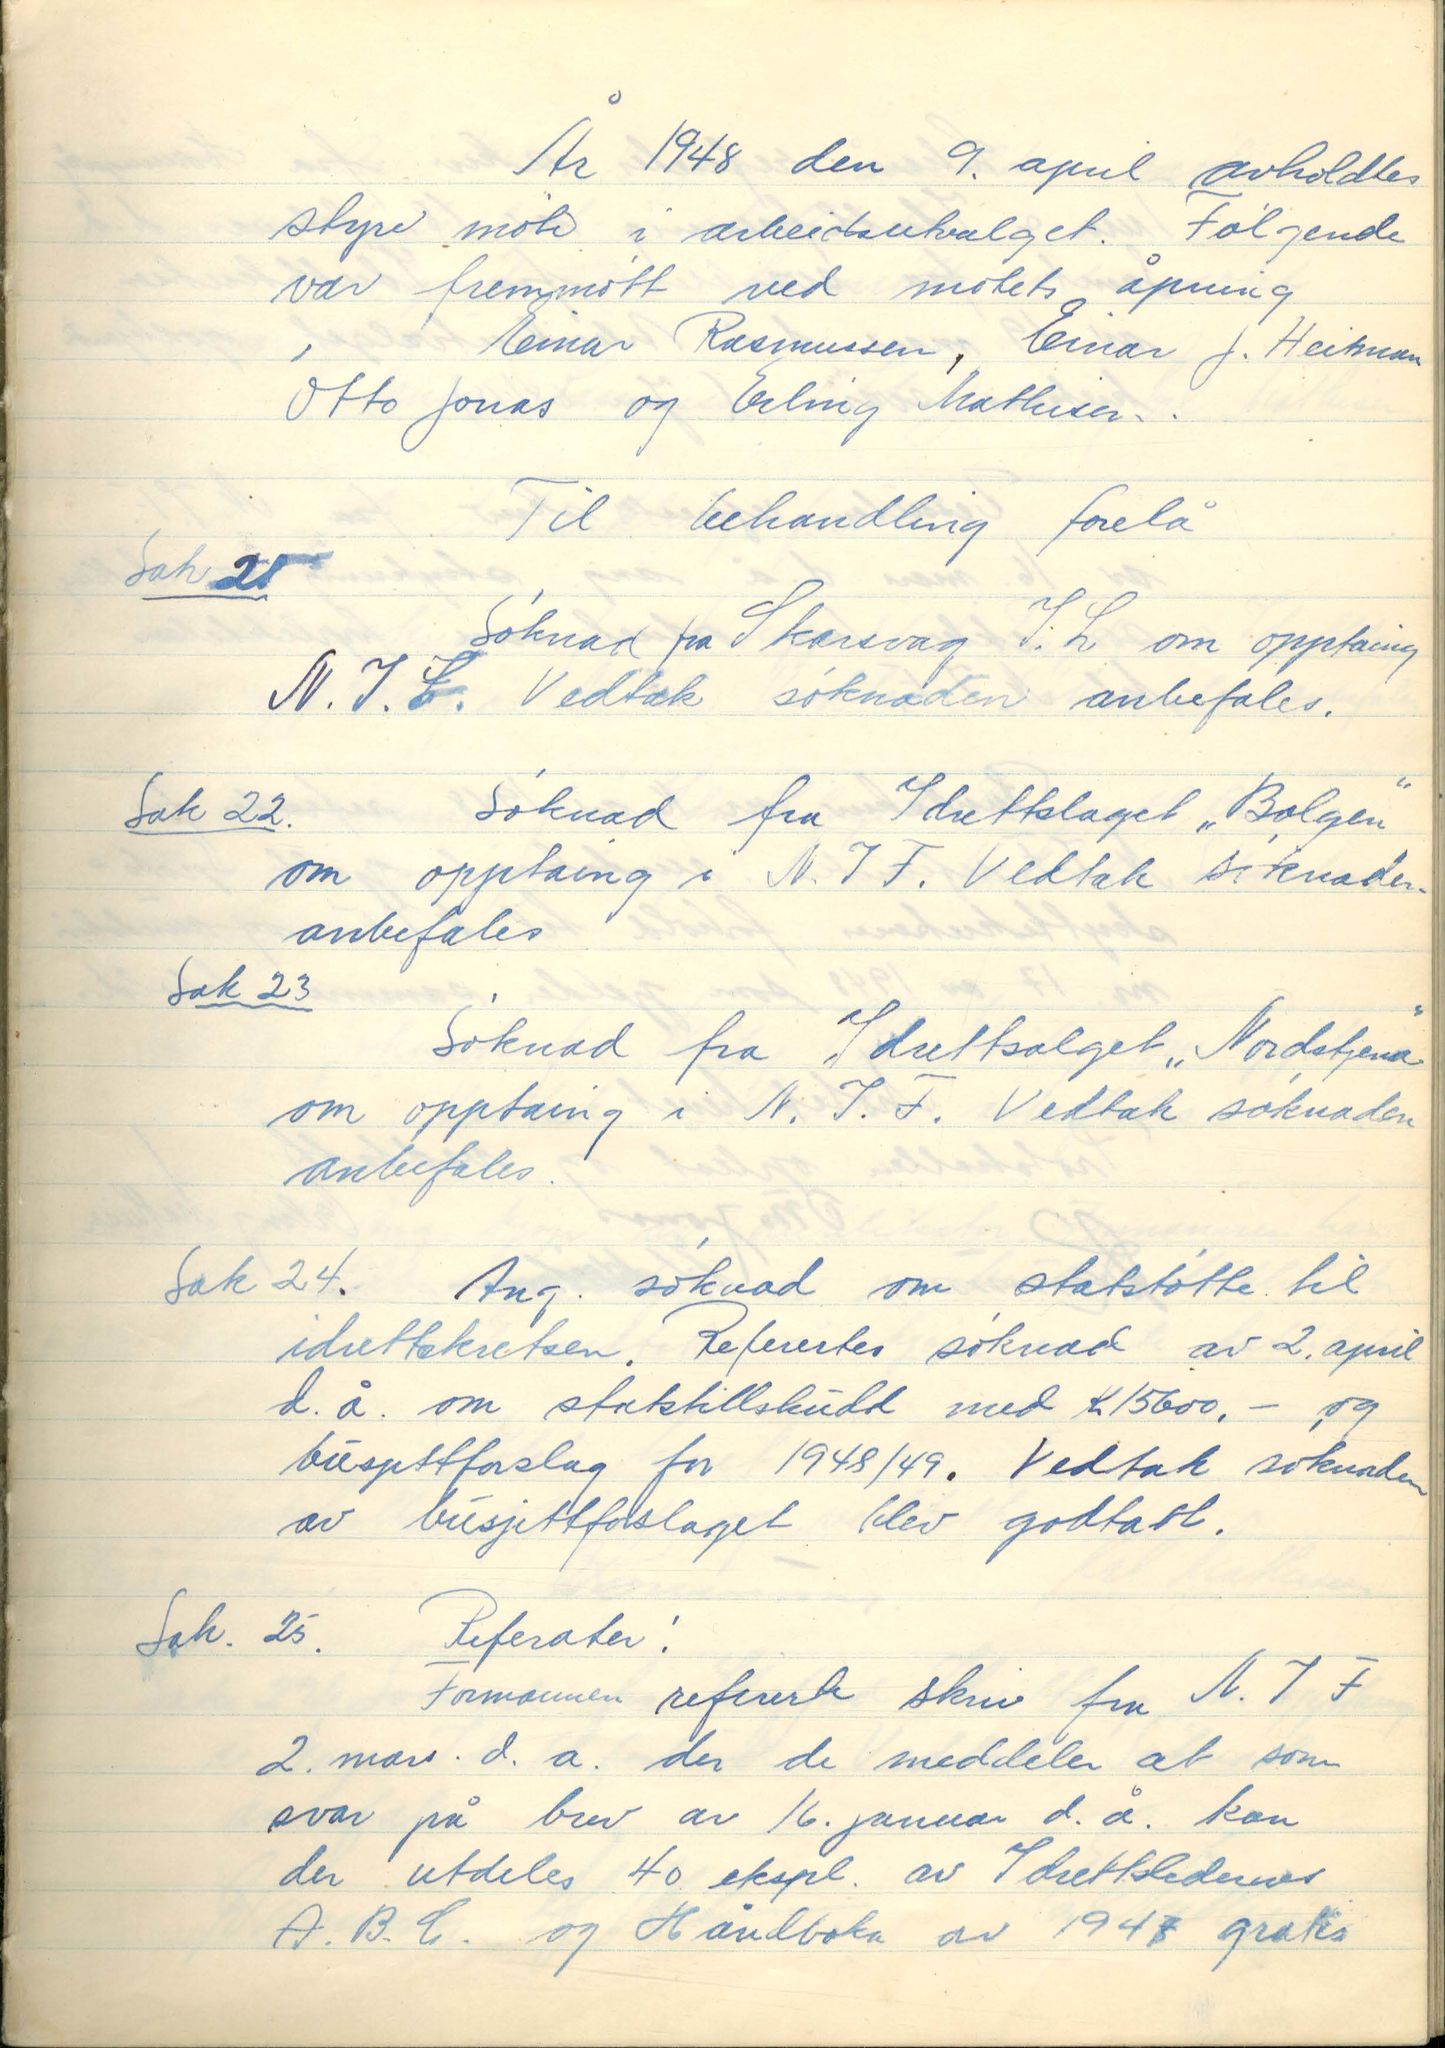 År 1948 den 9. april avholdtes
styre möte i arbeidsutvalget. Fölgende
var fremmött ved mötets åpning
Einar Rasmussen, Einar J. Heitman
Otto Jonas og Erling Mathisen.
Til behandling forelå
Sak 21
Söknad fra Skarsvag I.L om opptaing
N.I.F. Vedtak söknaden anbefales.
Sak 22. Söknad fra Idrettslaget „Bølgen“
om opptaing i N.I F. Vedtak söknaden
anbefales
Sak 23
Söknad fra Idrettsalget „Nordstjerna“
om opptaing i N.I.F. Vedtak söknaden
anbefales.
Sak 24. Ang. söknad om statstötte til
idrettskretsen. Refererter söknad av 2. april
d.å. om statstillskudd med k 15600,- og
busjettforslag for 1948/49. Vedtak söknaden
av busjettforslaget blev godtatt.
Sak. 25. Referater:
Formannen refererte skriv fra N.I F
2. mars. d. a. der de meddeler at som
svar på brev av 16. januar d.å. kan
der utdeles 40 ekspl. av Idrettsledernes
A.B.C. og Håndboka av 1947 gratis